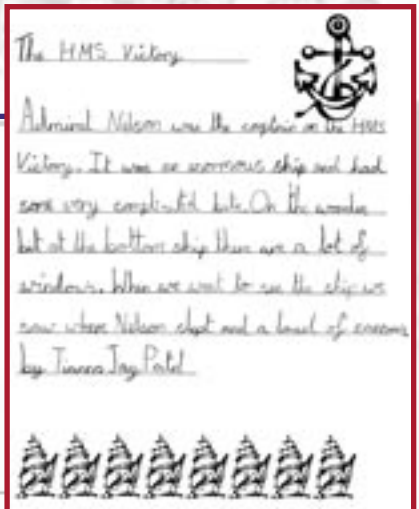 The HMS Victory
Admiral Nelson was the captain on the HMS
Victory. It was an enormous ship and had
some very complicated bits. On the wooden
bit at the bottom ship there are a lot of
windows. When we went to see the ship we
saw where Nelson slept and a of
by Jay Patel